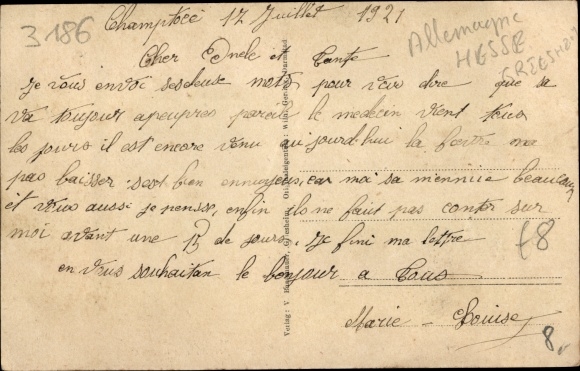 3186
Champtocé 17 Juillet 1921
Allemagne
HESSE
Cher Oncle et Tante
Je vous envoi ses deuse mots pour vous dire que sa
va toujour apeuprès pareil le medecin vient tous
les jours il est encore venu aujourdhui la fievre na
pas baisser sest bien ennuyeux car moi sa m'ennuie beaucoup
et vous aussi je pensse, enfin ils ne faut pas conter sur
moi avant une 15 de jours. Je fini ma lettre
en vous souhaitan le bonjour a Tous
Marie-Louise
f8
8,-
Verlag: V.